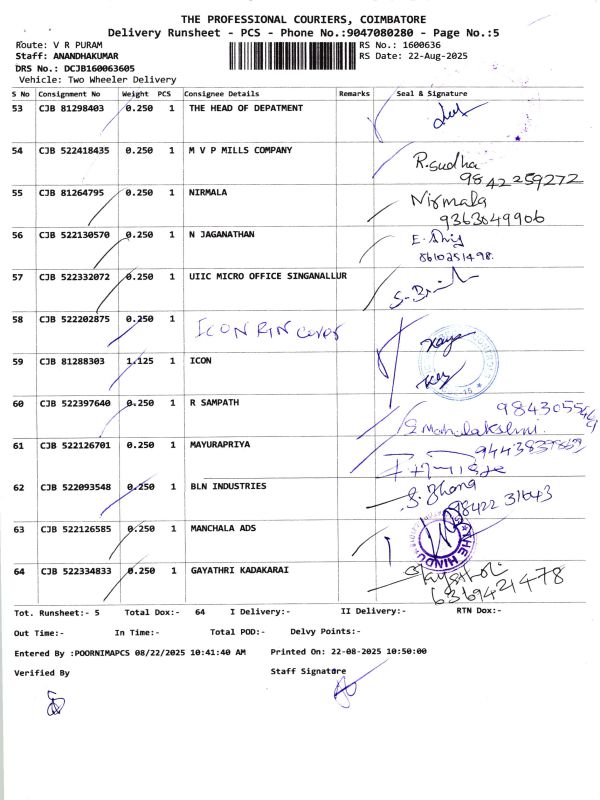 THE PROFESSIONAL COURIERS, COIMBATORE
Delivery Runsheet - PCS - Phone No.:9047080280 - Page No.:5
Route: V R PURAM RS No.: 1600636
Staff: ANANDHAKUMAR RS Date: 22-Aug-2025
DRS No.: DCJB160063605
Vehicle: Two Wheeler Delivery
S No Consignment No Weight PCS Consignee Details Remarks Seal & Signature
53 CJB 81298403 0.250 1 THE HEAD OF DEPATMENT
54 CJB 522418435 0.250 1 M V P MILLS COMPANY R.Sudha
9842259272
55 CJB 81264795 0.250 1 NIRMALA Nirmala
9363049906
56 CJB 522130570 0.250 1 N JAGANATHAN
8610251498.
57 CJB 522332072 0.250 1 UIIC MICRO OFFICE SINGANALLUR
58 CJB 522202875 0.250 1 ICON
59 CJB 81288303 1.125 1 ICON
60 CJB 522397640 0.250 1 R SAMPATH
S Mahalakshmi.
61 CJB 522126701 0.250 1 MAYURAPRIYA
62 CJB 522093548 0.250 1 BLN INDUSTRIES
98422 31643
63 CJB 522126585 0.250 1 MANCHALA ADS THE HINDU
64 CJB 522334833 0.250 1 GAYATHRI KADAKARAI
6369421478
Tot. Runsheet:- 5 Total Dox:- 64 I Delivery:- II Delivery:- RTN Dox:-
Out Time:- In Time:- Total POD:- Delvy Points:-
Entered By :POORNIMAPCS 08/22/2025 10:41:40 AM Printed On: 22-08-2025 10:50:00
Verified By Staff Signature